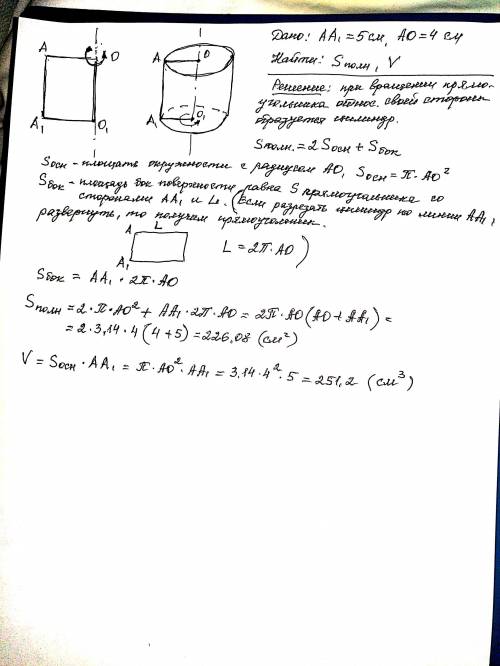 A O
A₁ O₁
A O
A₁ O₁
Дано: AA₁ = 5 см, AO = 4 см
Найти: Sполн, V
Решение: при вращении прямо-
угольника относ. своей стороны
образуется цилиндр.
Sполн. = 2 Sосн + Sбок
Sосн - площадь окружности с радиусом AO, Sосн = π · AO²
Sбок - площадь бок поверхности равна S прямоугольника со
сторонами AA₁ и L. (Если разрезать цилиндр по линии AA₁,
развернуть, то получим прямоугольник.
A L
A₁
L = 2π · AO )
Sбок = AA₁ · 2π · AO
Sполн = 2 · π · AO² + AA₁ · 2π · AO = 2π · AO (AO + AA₁) =
= 2 · 3,14 · 4 (4 + 5) = 226,08 (см²)
V = Sосн · AA₁ = π · AO² · AA₁ = 3,14 · 4² · 5 = 251,2 (см³)